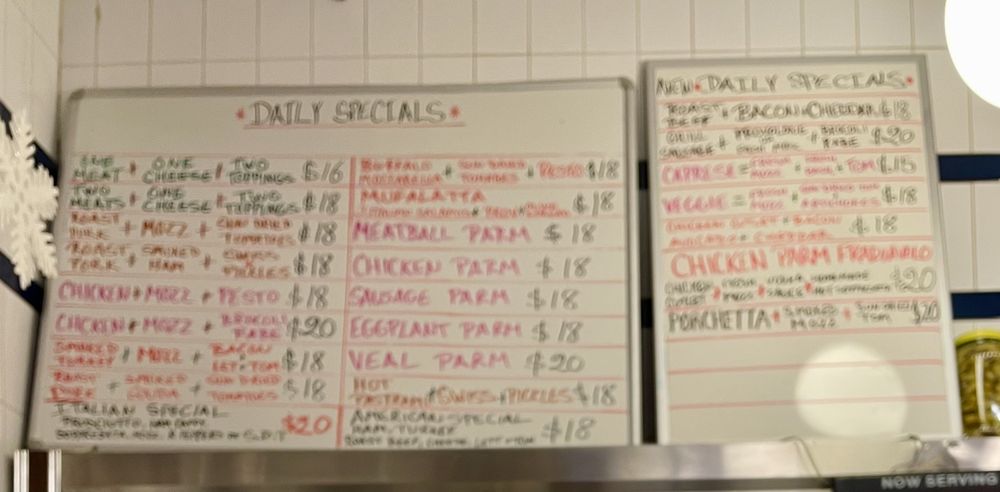 DAILY SPECIALS
ONE MEAT + ONE CHEESE + TWO TOPPINGS $16
TWO MEATS + ONE CHEESE + TWO TOPPINGS $18
ROAST PORK + MOZZ + SUN DRIED TOMATOES $18
ROAST PORK + SMOKED HAM + SWISS + PICKLES $18
CHICKEN + MOZZ + PESTO $18
CHICKEN + MOZZ + BROCOLI RABE $20
SMOKED TURKEY + MOZZ + BACON LET + TOM $18
ROAST PORK + SMOKED GOUDA + SUN DRIED TOMATOES $18
ITALIAN SPECIAL
PROSCIUTTO, HAM $20
MOZZARELLA + SUN DRIED TOMATOES + PESTO $18
MUFALATTA
$18
MEATBALL PARM $18
CHICKEN PARM $18
SAUSAGE PARM $18
EGGPLANT PARM $18
VEAL PARM $20
HOT PASTRAMI + SWISS + PICKLES $18
AMERICAN SPECIAL
HAM, TURKEY
ROAST BEEF, LETT + TOM $18
DAILY SPECIALS
ROAST BEEF + BACON + CHEDDAR $18
SAUSAGE + PROVOLONE + BROCOLI RABE $20
CAPRESE = TOM $15
VEGGIE = $18
CHICKEN CUTLET + BACON
AVOCADO + CHEDDAR $18
CHICKEN PARM
CHICKEN CUTLET + FRESH MOZZ + VODKA SAUCE + $20
PORCHETTA + SMOKED MOZZ + SUN DRIED TOM $20
NOW SERVING